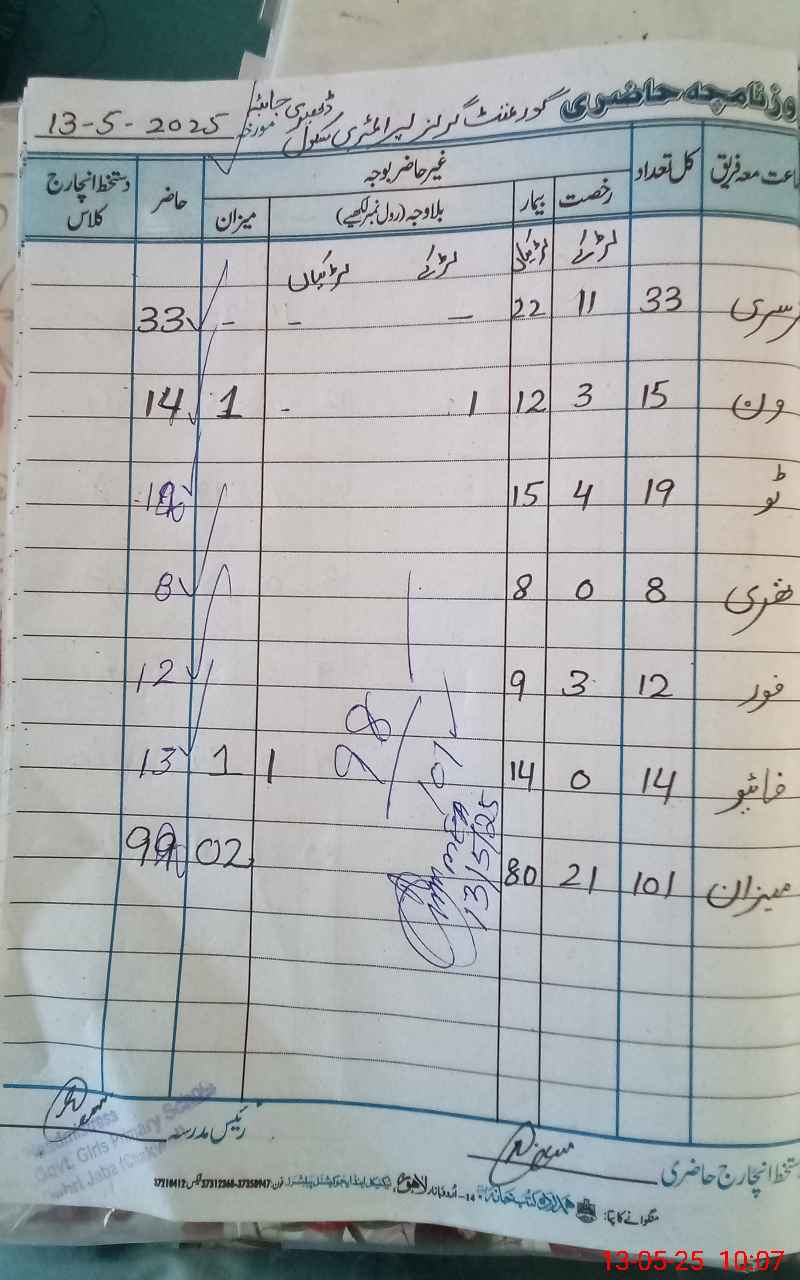 روزنامچہ حاضری گورنمنٹ گرلز پرائمری سکول ڈھیری جابہ مورخہ 13-5-2025
جماعت معہ فریق کل تعداد غیر حاضر بوجہ حاضر دستخط انچارج کلاس
رخصت بیمار بلاوجہ (رول نمبر لکھیے) میزان
لڑکے لڑکیاں لڑکے لڑکیاں
نرسری 33 11 22 – – – 33
ون 15 3 12 1 - 1 14
ٹو 19 4 15
تھری 8 0 8 8
فور 12 3 9 12
فائیو 14 0 14 1 1 13
میزان 101 21 80 02
98
01
13/5/25
دستخط انچارج حاضری
رئیس مدرسہ
Govt. Girls Primary School
منگوانے کا پتا: ہمدرد کتب خانہ 14- اردو بازار لاہور
37310412
13-05-25 10:07